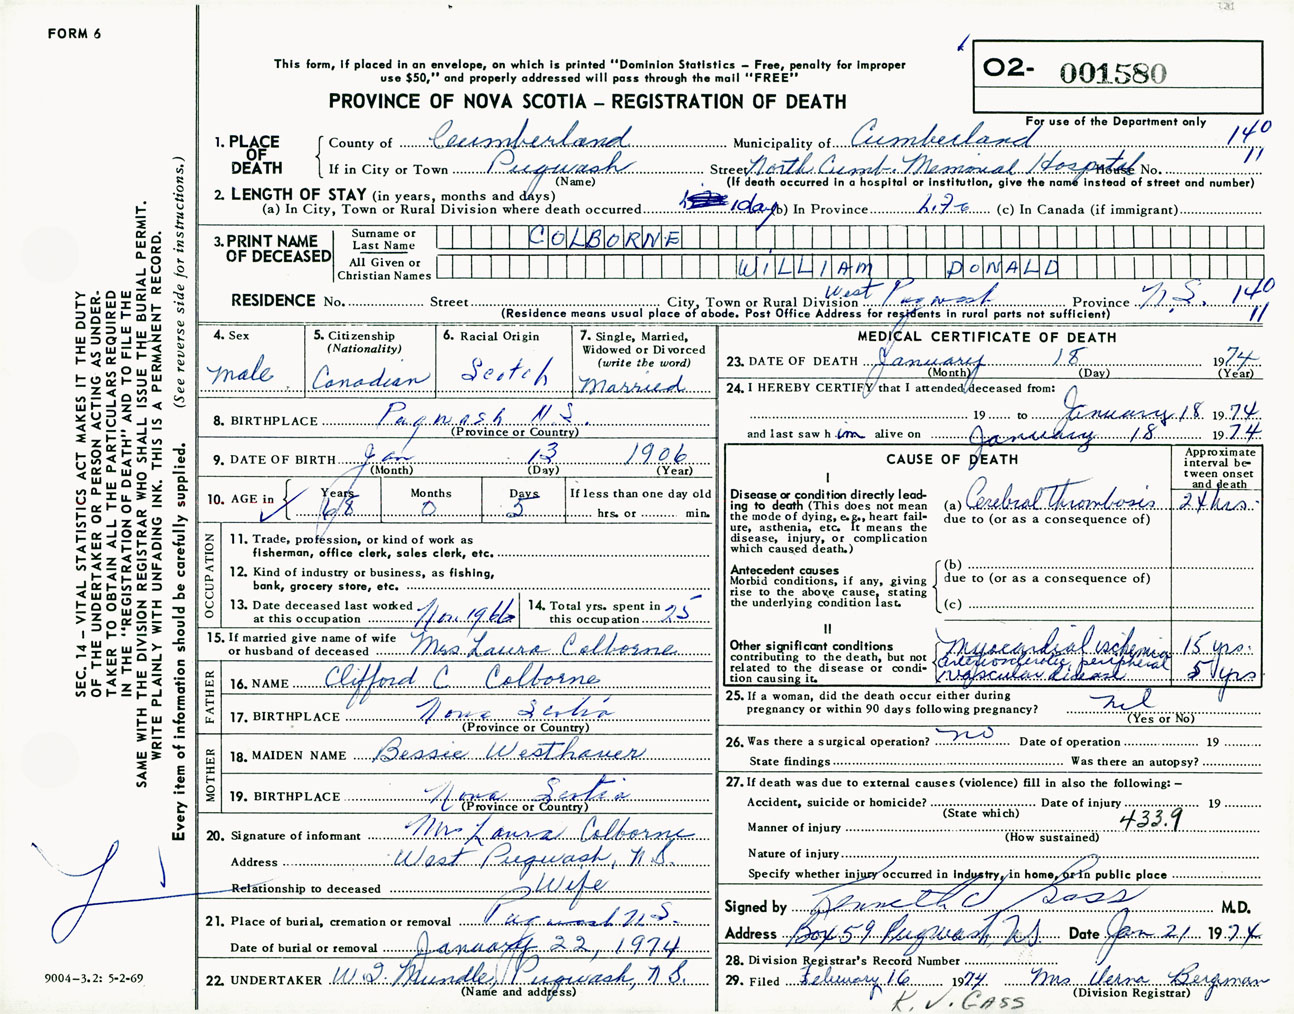 FORM 6
This form, if placed in an envelope, on which is printed "Dominion Statistics – Free, penalty for improper
use $50," and properly addressed will pass through the mail "FREE"
PROVINCE OF NOVA SCOTIA – REGISTRATION OF DEATH
O2- 001580
For use of the Department only
1. PLACE OF DEATH
County of Cumberland Municipality of Cumberland 140
If in City or Town Pugwash Street North Cumb. Memorial Hospital House No. 11
(Name) (If death occurred in a hospital or institution, give the name instead of street and number)
2. LENGTH OF STAY (in years, months and days)
(a) In City, Town or Rural Division where death occurred 1 day (b) In Province Life (c) In Canada (if immigrant)
3. PRINT NAME OF DECEASED
Surname or Last Name COLBORNE
All Given or Christian Names WILLIAM DONALD
RESIDENCE No. Street City, Town or Rural Division West Pugwash Province N.S. 140
(Residence means usual place of abode. Post Office Address for residents in rural parts not sufficient) 11
4. Sex
male
5. Citizenship
(Nationality)
Canadian
6. Racial Origin
Scotch
7. Single, Married,
Widowed or Divorced
(write the word)
Married
8. BIRTHPLACE Pugwash N S.
(Province or Country)
9. DATE OF BIRTH Jan 13 1906
(Month) (Day) (Year)
10. AGE in Years Months Days If less than one day old
68 0 5 hrs. or min.
OCCUPATION
11. Trade, profession, or kind of work as
fisherman, office clerk, sales clerk, etc.
12. Kind of industry or business, as fishing,
bank, grocery store, etc.
13. Date deceased last worked
at this occupation Nov. 1966
14. Total yrs. spent in
this occupation 25
15. If married give name of wife
or husband of deceased Mrs Laura Colborne
FATHER
16. NAME Clifford C Colborne
17. BIRTHPLACE Nova Scotia
(Province or Country)
MOTHER
18. MAIDEN NAME Bessie Westhaver
19. BIRTHPLACE Nova Scotia
(Province or Country)
20. Signature of informant Mrs Laura Colborne
Address West Pugwash, N.S.
Relationship to deceased Wife
21. Place of burial, cremation or removal Pugwash N S.
Date of burial or removal January 22, 1974
22. UNDERTAKER Mundle, Pugwash, N.S.
(Name and address)
MEDICAL CERTIFICATE OF DEATH
23. DATE OF DEATH January 18 1974
(Month) (Day) (Year)
24. I HEREBY CERTIFY that I attended deceased from:
19 to January 18 1974
and last saw him alive on January 18 1974
CAUSE OF DEATH
Approximate
interval be-
tween onset
and death
I
Disease or condition directly lead-
ing to death (This does not mean
the mode of dying, e.g., heart fail-
ure, asthenia, etc. It means the
disease, injury, or complication
which caused death.)
(a) Cerebral thrombosis 24 hrs.
due to (or as a consequence of)
Antecedent causes
Morbid conditions, if any, giving
rise to the above cause, stating
the underlying condition last.
(b)
due to (or as a consequence of)
(c)
II
Other significant conditions
contributing to the death, but not
related to the disease or condi-
tion causing it.
Myocardial ischemia 15 yrs.
arteriosclerotic peripheral
vascular disease 5 yrs
25. If a woman, did the death occur either during
pregnancy or within 90 days following pregnancy? nil
(Yes or No)
26. Was there a surgical operation? no Date of operation 19
State findings Was there an autopsy?
27. If death was due to external causes (violence) fill in also the following: –
Accident, suicide or homicide? Date of injury 19
(State which)
Manner of injury 433.9
(How sustained)
Nature of injury
Specify whether injury occurred in industry, in home, or in public place
Signed by Kenneth J Gass M.D.
Address Box 59 Pugwash, N.S. Date Jan 21 1974
28. Division Registrar's Record Number
29. Filed February 16 1974 Mrs Verna Bergman
(Division Registrar)
K. J. GASS
SEC. 14 – VITAL STATISTICS ACT MAKES IT THE DUTY
OF THE UNDERTAKER OR PERSON ACTING AS UNDER-
TAKER TO OBTAIN ALL THE PARTICULARS REQUIRED
IN THE "REGISTRATION OF DEATH" AND TO FILE THE
SAME WITH THE DIVISION REGISTRAR WHO SHALL ISSUE THE BURIAL PERMIT.
WRITE PLAINLY WITH UNFADING INK. THIS IS A PERMANENT RECORD.
Every item of information should be carefully supplied. (See reverse side for instructions.)
9004-3.2: 5-2-69